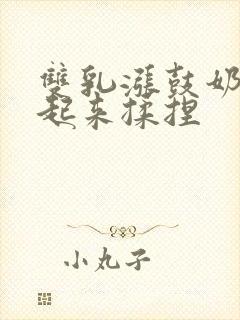 雙乳漲鼓奶
起来揉捏
小丸子